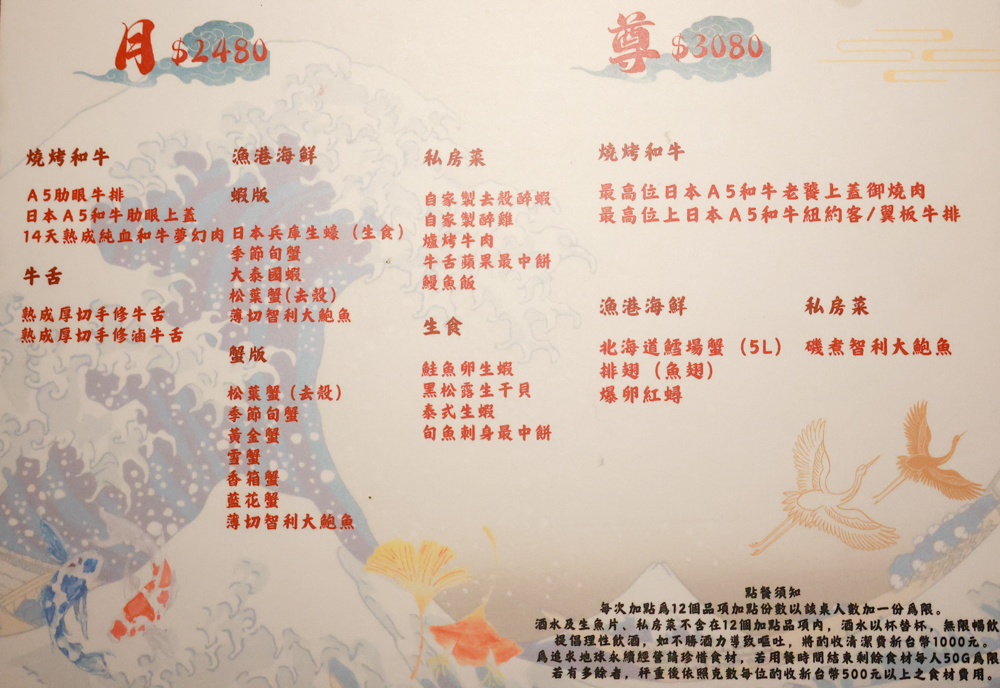 月 $2480
燒烤和牛
A5肋眼牛排
日本A5和牛肋眼上蓋
14天熟成純血和牛夢幻肉
牛舌
熟成厚切手修牛舌
熟成厚切手修滷牛舌
漁港海鮮
蝦版
日本兵庫生蠔（生食）
季節旬蟹
大泰國蝦
松葉蟹(去殼)
薄切智利大鮑魚
蟹版
松葉蟹(去殼)
季節旬蟹
黃金蟹
雪蟹
香箱蟹
藍花蟹
薄切智利大鮑魚
私房菜
自家製去殼醉蝦
自家製醉雞
爐烤牛肉
牛舌蘋果最中餅
鰻魚飯
生食
鮭魚卵生蝦
黑松露生干貝
泰式生蝦
旬魚刺身最中餅
尊 $3080
燒烤和牛
最高位日本A5和牛老饕上蓋御燒肉
最高位上日本A5和牛紐約客/翼板牛排
漁港海鮮
北海道鱈場蟹（5L）
排翅（魚翅）
爆卵紅蟳
私房菜
磯煮智利大鮑魚
點餐須知
每次加點為12個品項加點份數以該桌人數加一份為限。
酒水及生魚片、私房菜不含在12個加點品項內，酒水以杯替杯，無限暢飲
提倡理性飲酒，如不勝酒力導致嘔吐，將酌收清潔費新台幣1000元。
為追求地球永續經營請珍惜食材，若用餐時間結束剩餘食材每人50G為限
若有多餘者，秤重後依照克數每位酌收新台幣500元以上之食材費用。